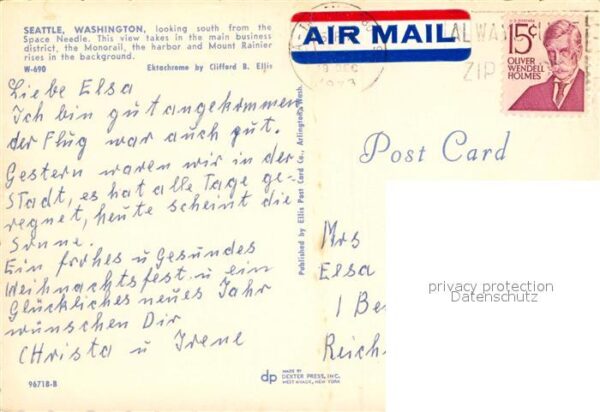 SEATTLE, WASHINGTON, looking south from the
Space Needle. This view takes in the main business
district, the Monorail, the harbor and Mount Rainier
rises in the background.
W-690 Ektachrome by Clifford B. Ellis
Liebe Elsa
Ich bin gut angekommen
der Flug war auch gut.
Gestern waren wir in der
Stadt, es hat alle Tage ge-
regnet, heute scheint die
Sonne.
Ein frohes u Gesundes
Weihnachtsfest u ein
Glückliches neues Jahr
wünschen Dir
Christa u Irene
96718-B
Published by Ellis Post Card Co., Arlington, Wash.
dp MADE BY
DEXTER PRESS, INC.
WEST NYACK, NEW YORK
AIR MAIL
ALWAY
ZIP
DEC
1973
15¢
OLIVER
WENDELL
HOLMES
Post Card
Mrs
Elsa
1 Be
Reich
privacy protection
Datenschutz